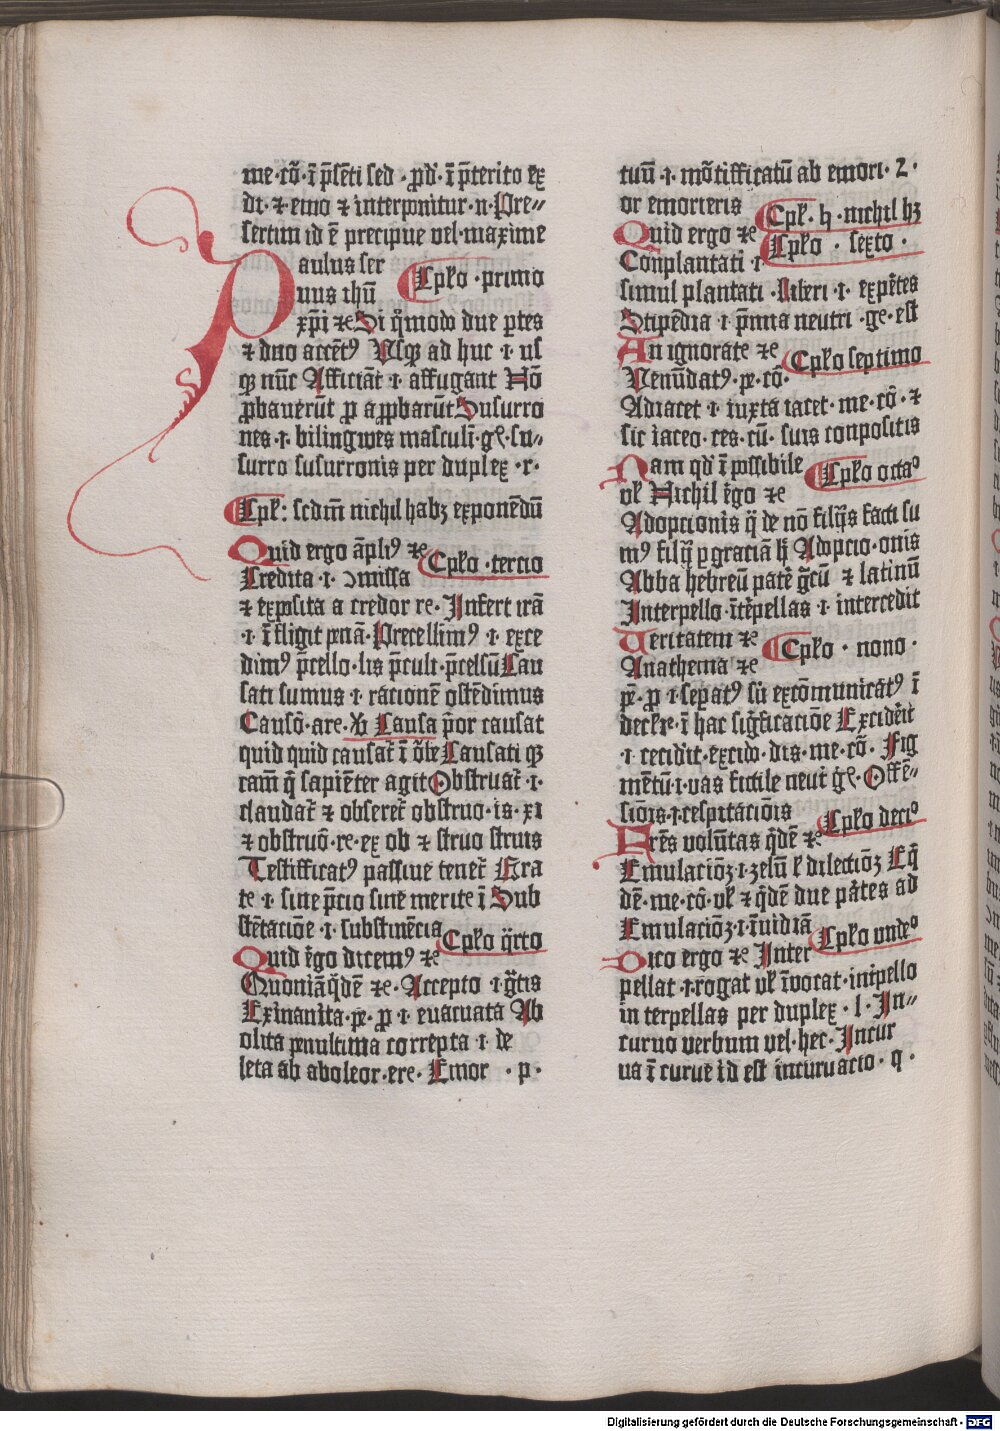 me·cõ·ĩ p̃sẽti sed ꝓd' ĩ p̃terito ex
di·⁊ emo ⁊ interponitur·n·Pre⸗
sertim id ẽ precipue vel·maxime
Paulus ser
Cpło·primo
uus ihũ
xp̃i ⁊c Si q̃modo due ꝑtes
⁊ duo accẽtꝰ Vsqꝫ ad huc·i·us
qꝫ nũc Afficiãt·i·affugant Nõ
ꝓbauerũt ꝓ a ꝓbarũt Susurro
nes·i·bilingwes masculi·gñ·su⸗
surro susurronis per duplex·r·
Cpł: scdm̃ nichil habꝫ exponẽdũ
Quid ergo ãpliꝰ ⁊c
Cpło·tercio
Credita·i·ↄmissa
⁊ exposita a credor re·Infert irã
·i·ĩfligit pnã·Precellimꝰ·i·exce
dimꝰ p̃cello·lis p̃culi·p̃celsũ Cau
sati sumus·i·racionẽ ostẽdimus
Causõ·are· Causa p̃or causat
quid quid causat̃ ĩ Causati qꝫ
ram̃ q̃ sapiẽter agit Obstruat̃·i·
claudat̃ ⁊ obseret̃ obstruo·is·xi
⁊ obstruõ·re·ex ob ⁊ struo struis
Testifficatꝰ passiue tenet̃ Gra
te·i·sine p̃cio sine merite ĩ Sub
stẽtaciõe·i·substinẽcia
Cpło q̃rto
Quid ẽgo dicemꝰ ⁊c
Quoniã q̃dẽ ⁊c·Accepto·i·g̃tis
Exinanita·pe·ꝓ·i·euacuata Ab
olita penultima correpta·i·de
leta ab aboleor·ere·Emor·p·
tuũ·i·mõtifficatũ ab emori·2·
or emorieris
Cpł·h·nichil hꝫ
Quid ergo ⁊c
Cpło·sexto·
Conplantati·i·
simul plantati·Liberi·i·expẽtes
Stipẽdia·i·p̃nna neutri·ge·est
An ignorate ⁊c
Cpło septimo
Venũdatꝰ·pe·cõ·
Adiacet·i·iuxta iacet·me·cõ·⁊
sic iaceo·ces·cũ·suis conpositis
Nam qd' ĩpossibile
Cpło octaº
vł Nichil ẽgo ⁊c
Adopcionis q̃ de nõ filijs facti su
mꝰ filij ꝑ graciã h̃ Adopcio·onis
Abba hebreũ patẽ g̃cũ ⁊ latinũ
Interpello·ĩtẽpellas·i·intercedit
Veritatem ⁊c
Cpło·nono·
Anathema ⁊c
pe·ꝓ·i·sepatꝰ sũ excõmunicãtꝰ ĩ
decere·ĩ hac sig̃ficaciõe Excidẽit
·i·cecidit·excido·dis·me·cõ·Fig
mẽtũ·i·vas fictile neut̃ gñ·Offẽ⸗
siõis·i·cespitaciõis
Cpło deciº
Frẽs volũtas q̃dẽ ⁊c
Emulaciõꝫ·i·zelũ ł dilectiõꝫ Eq̃
dẽ·me·cõ·vł ⁊ q̃dẽ due pãtes ad
Emulaciõꝫ·i·ĩuidiã
Cpło vndeº
Dico ergo ⁊c Inter
pellat·i·rogat vł ĩuocat·int̃pello
in terpellas per duplex·l·In⸗
curuo verbum vel·hec·Incur
ua ĩ curue id est incuruacio·q·
Digitalisierung gefördert durch die Deutsche Forschungsgemeinschaft - DFG